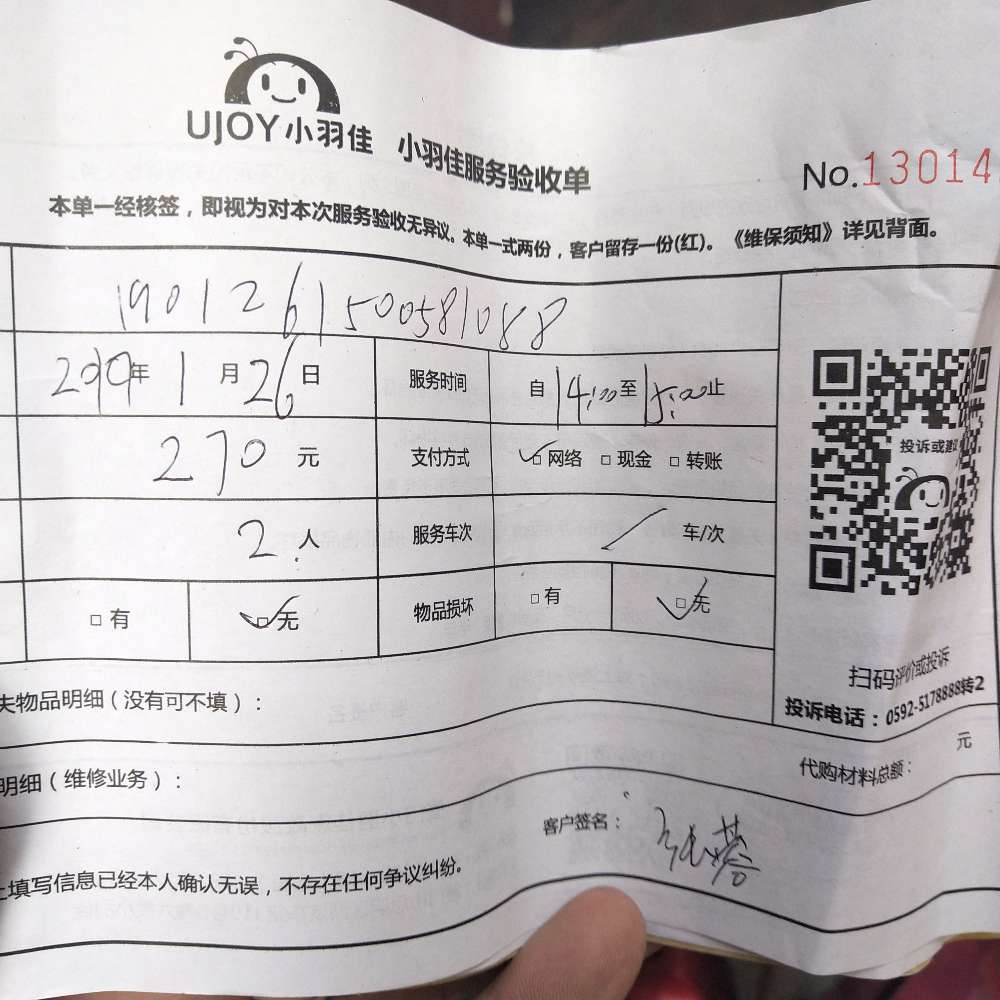 UJOY小羽佳 小羽佳服务验收单
No.13014
本单一经核签，即视为对本次服务验收无异议。本单一式两份，客户留存一份(红)。《维保须知》详见背面。
1901261500581088
2019年1月26日 服务时间 自14:00至15:00止
270元 支付方式 网络 现金 转账
2人 服务车次 / 车/次
有 无 物品损坏 有 无
投诉或建议
扫码评价或投诉
投诉电话：0592-5178888转2
失物品明细（没有可不填）：
明细（维修业务）：
代购材料总额： 元
客户签名：
上填写信息已经本人确认无误，不存在任何争议纠纷。